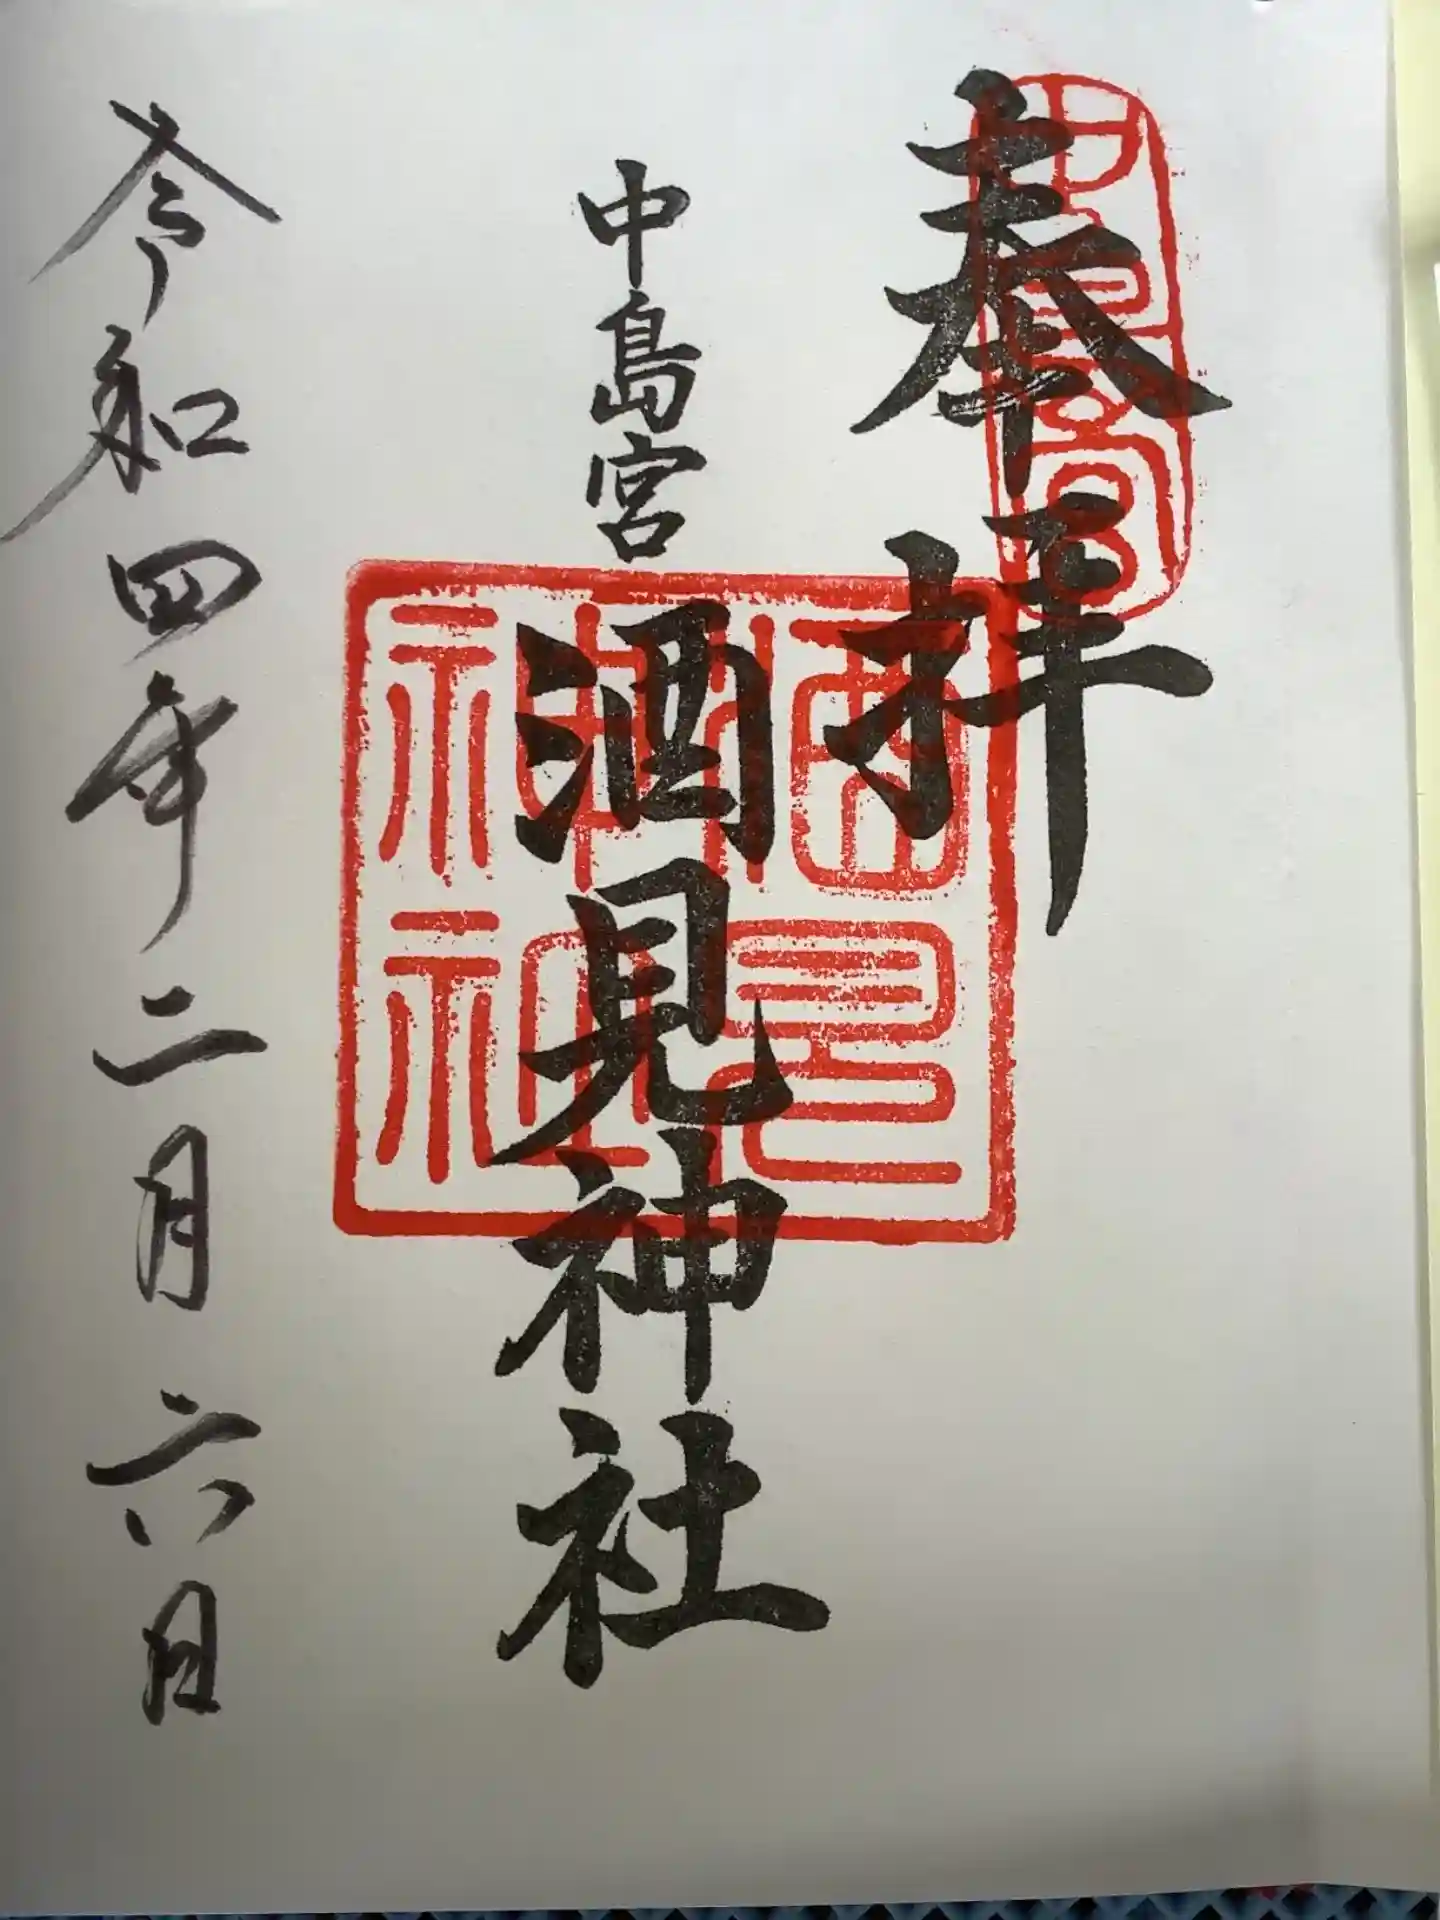 奉拝
中島宮
中島宮
酒見神社
酒見神社
令和四年二月六日